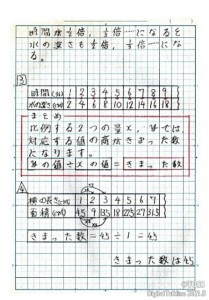 時間が1/2倍、1/3倍…になると
水の深さも1/2倍、1/3倍…にな
る。
3
時間(分) 1 2 3 4 5 6 7 8 9
水の深さ(cm) 2 4 6 8 10 12 14 16 18
まとめ
比例する2つの量x、yでは、
対応する値の商がきまった数
になります。
yの値÷xの値=きまった数
4
横の長さ(cm) 1 2 3 4 5 6 7
面積(cm²) 45 9 135 18 225 27 315
きまった数=45÷1=45
きまった数は45